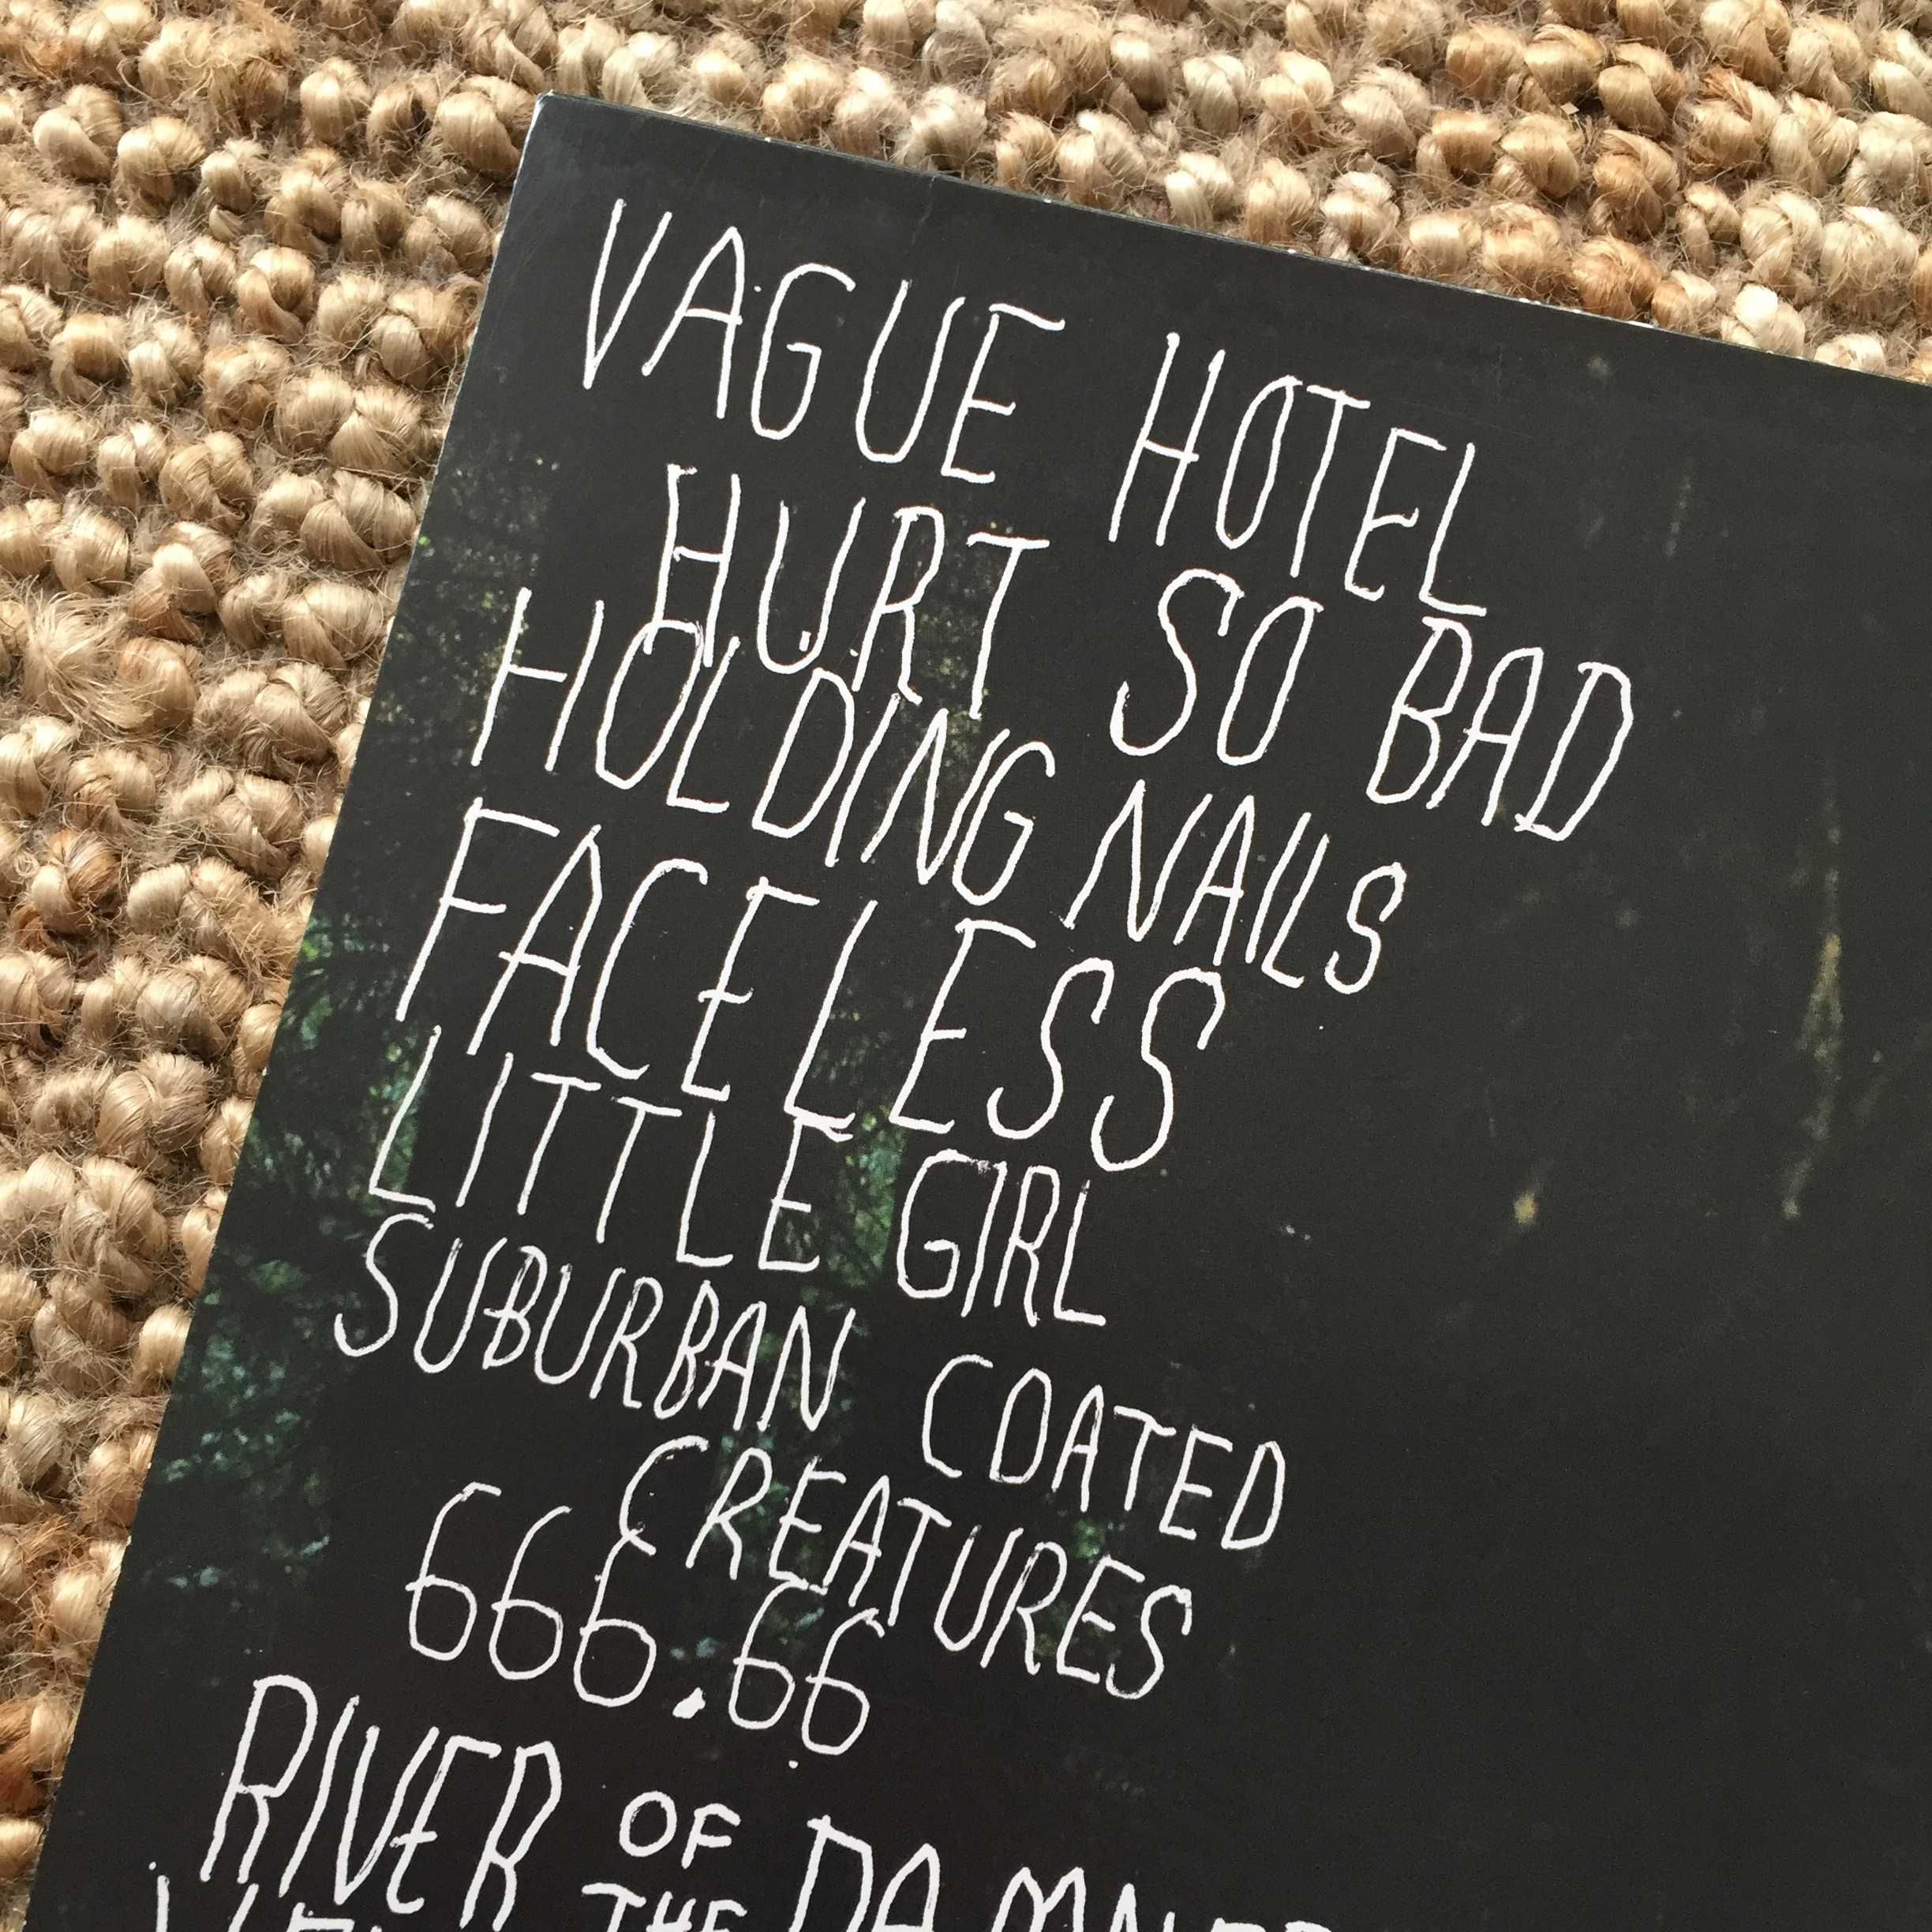 VAGUE HOTEL
HURT SO BAD
HOLDING NAILS
FACELESS
LITTLE GIRL
SUBURBAN COATED
CREATURES
666.66
RIVER OF DAMNED
THE